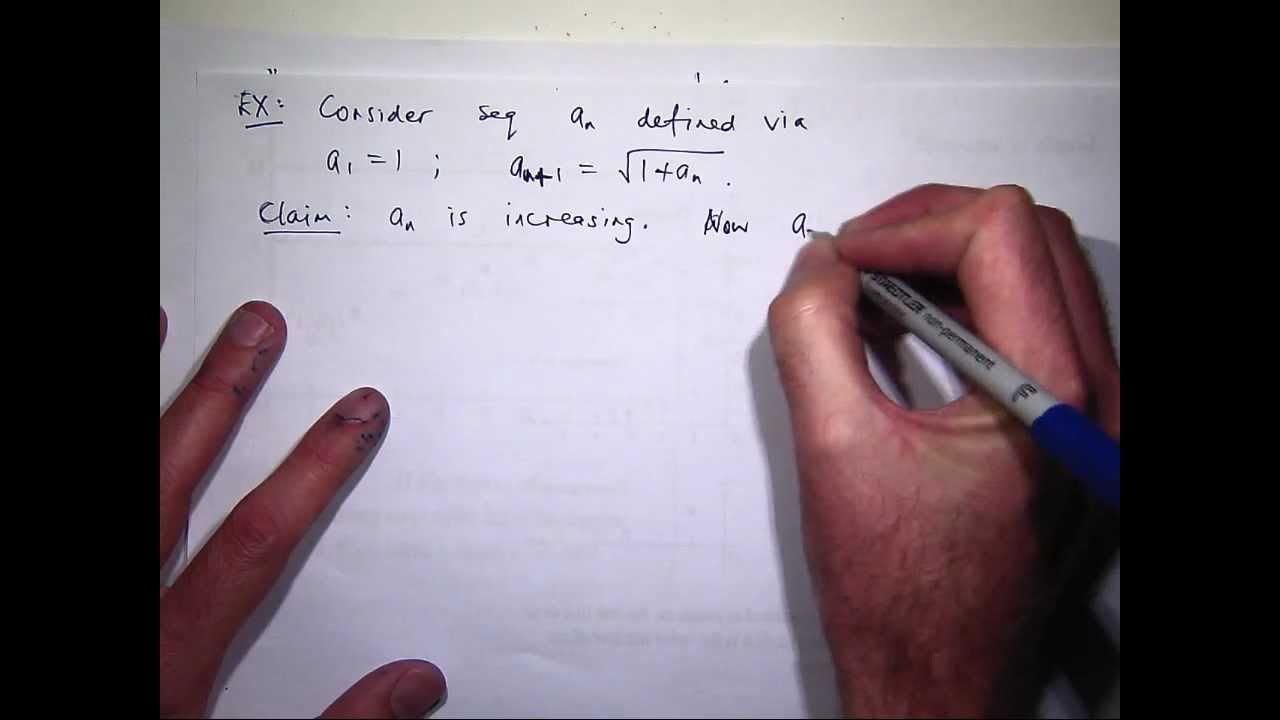 EX: Consider seq aₙ defined via
a₁ = 1 ; aₙ₊₁ = √(1+aₙ) .
Claim: aₙ is increasing. Now a
STAEDTLER non-permanent